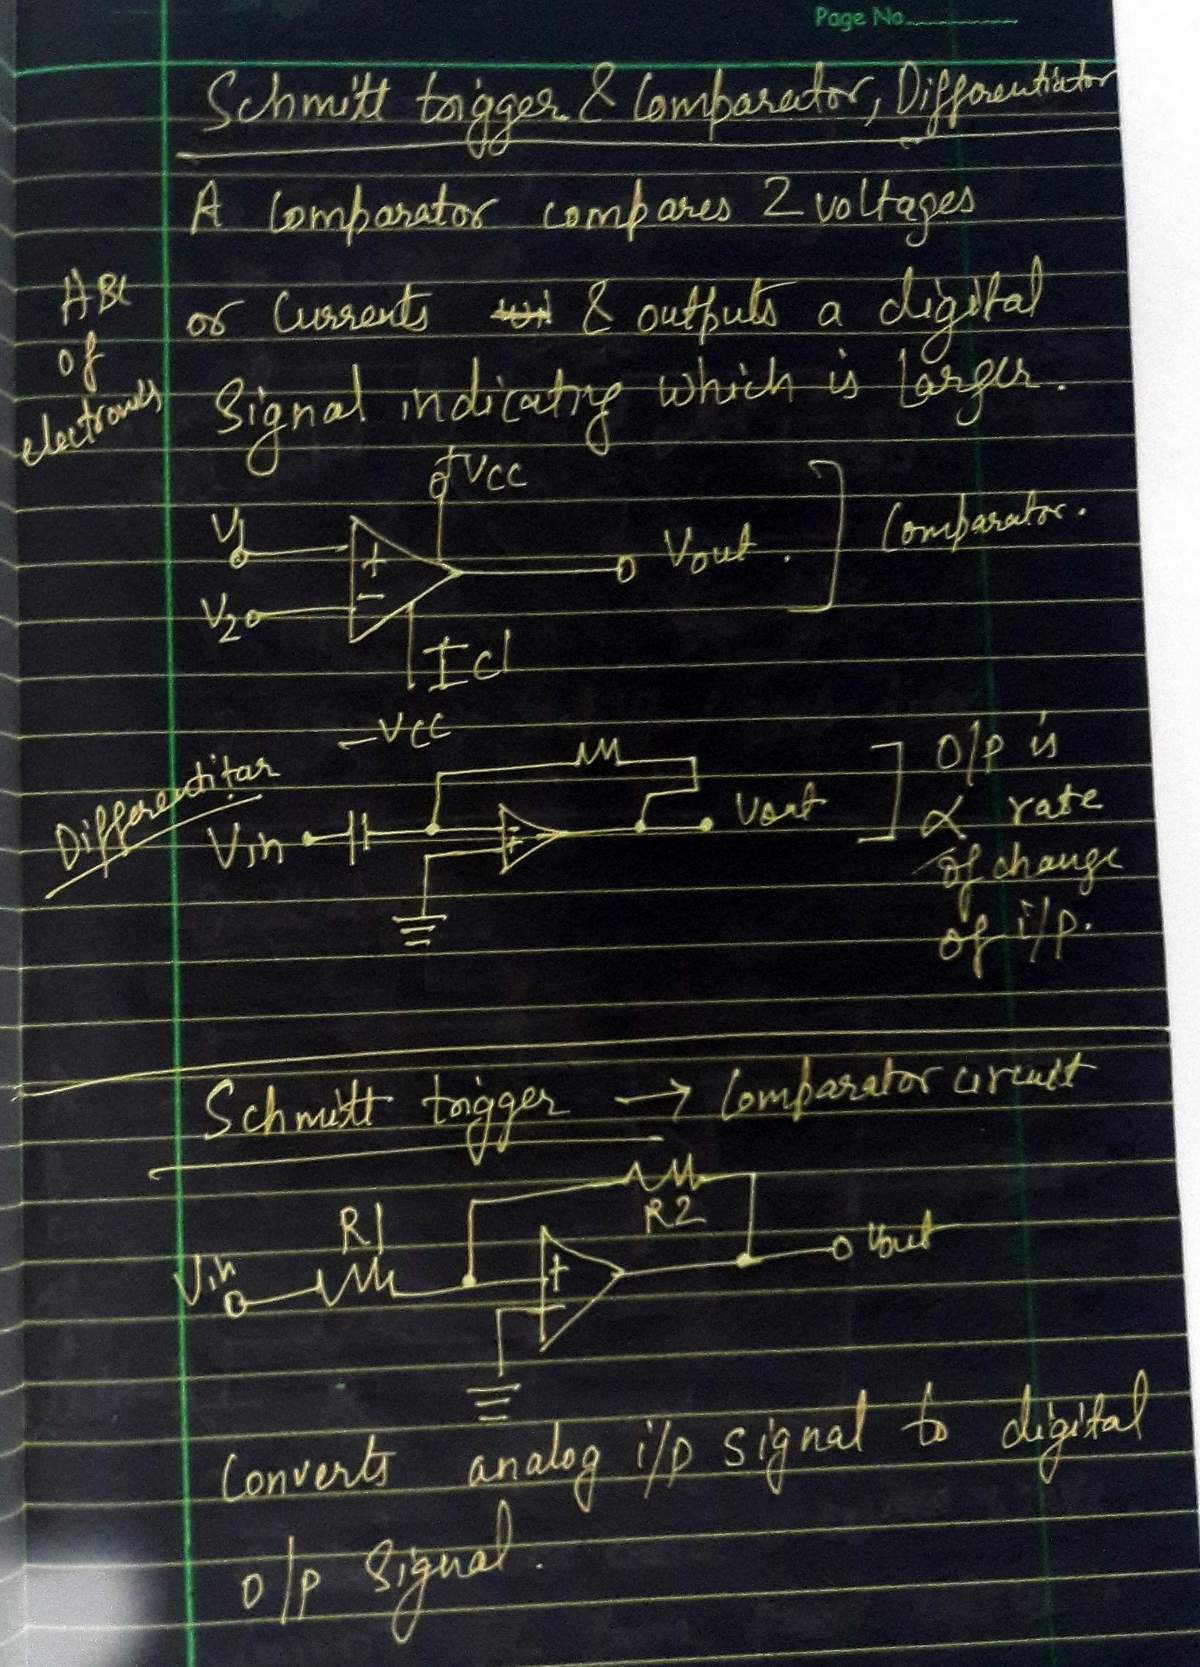 Page No.
Schmitt trigger & Comparator, Differentiator
A Comparator compares 2 voltages
ABC
of
electronics
or Currents & outputs a digital
Signal indicating which is Larger.
+VCC
V1
+
Vout.
Comparator.
V2
-
IC1
-VCC
Differentitar
Vin
+
Vout
O/P is
∝ rate
of change
of i/p.
Schmitt trigger → Comparator circuit
R2
R1
Vin
+
-
Vout
Converts analog i/p signal to digital
O/P Signal.